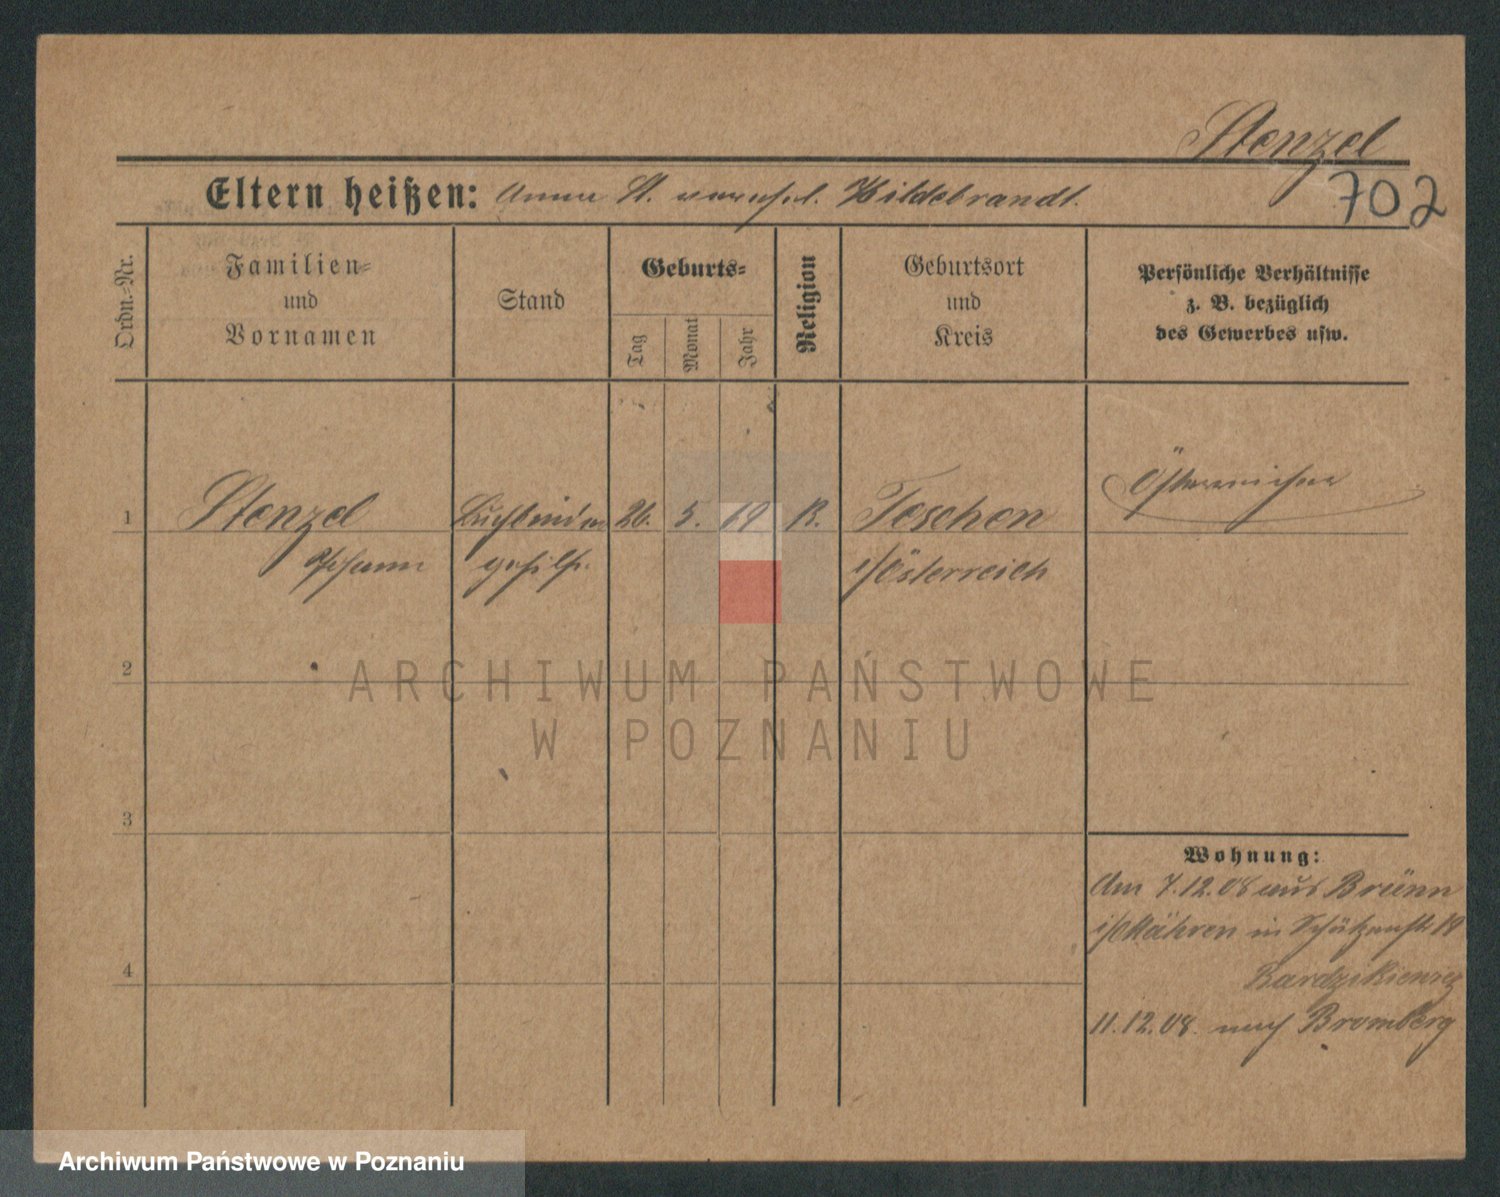 Stenzel
702
Eltern heißen: Anna St. verehel. Hildebrandt.
Ordn.-Nr.
Familien-
und
Vornamen
Stand
Geburts-
Tag
Monat
Jahr
Religion
Geburtsort
und
Kreis
Persönliche Verhältnisse
z. B. bezüglich
des Gewerbes usw.
Österreicher
1 Stenzel Buchbinder 26. 5. 89 K. Teschen
Johann gehilfe i/Österreich
2
3
4
ARCHIWUM PAŃSTWOWE
W POZNANIU
Wohnung:
Am 7.12.08 aus Brünn
i/Mähren in Schützenstr. 19
Bardzikiewicz
11.12.08. nach Bromberg
Archiwum Państwowe w Poznaniu